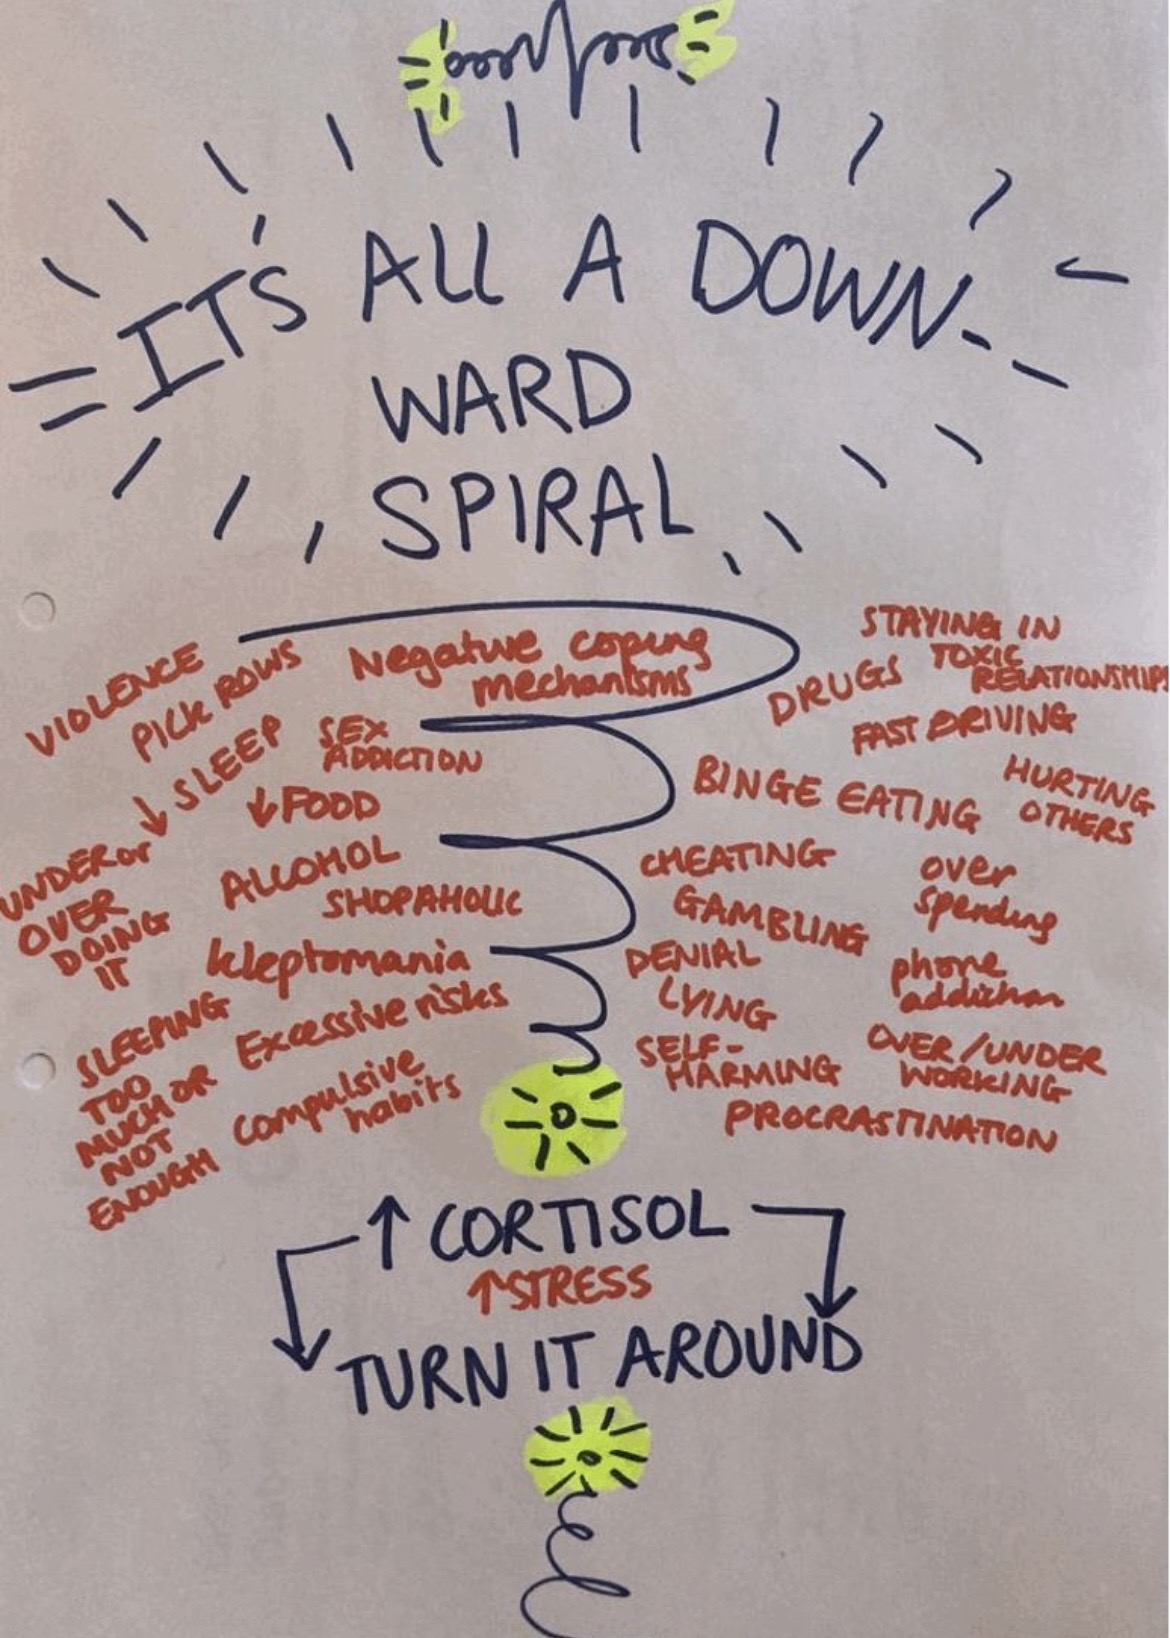 ITS ALL A DOWN-
WARD
SPIRAL
Negative coping
mechanisms
VIOLENCE
PICK ROWS
↓ SLEEP
SEX
ADDICTION
↓ FOOD
UNDER or
OVER
DOING
IT
ALCOHOL
SHOPAHOLIC
kleptomania
SLEEPING
TOO
MUCH OR
NOT
ENOUGH
Excessive risks
compulsive
habits
STAYING IN
TOXIC
RELATIONSHIPS
DRUGS
FAST DRIVING
HURTING
OTHERS
BINGE EATING
CHEATING
over
spending
GAMBLING
DENIAL
phone
addiction
LYING
SELF-
HARMING
OVER/UNDER
WORKING
PROCRASTINATION
↑ CORTISOL
↑ STRESS
TURN IT AROUND